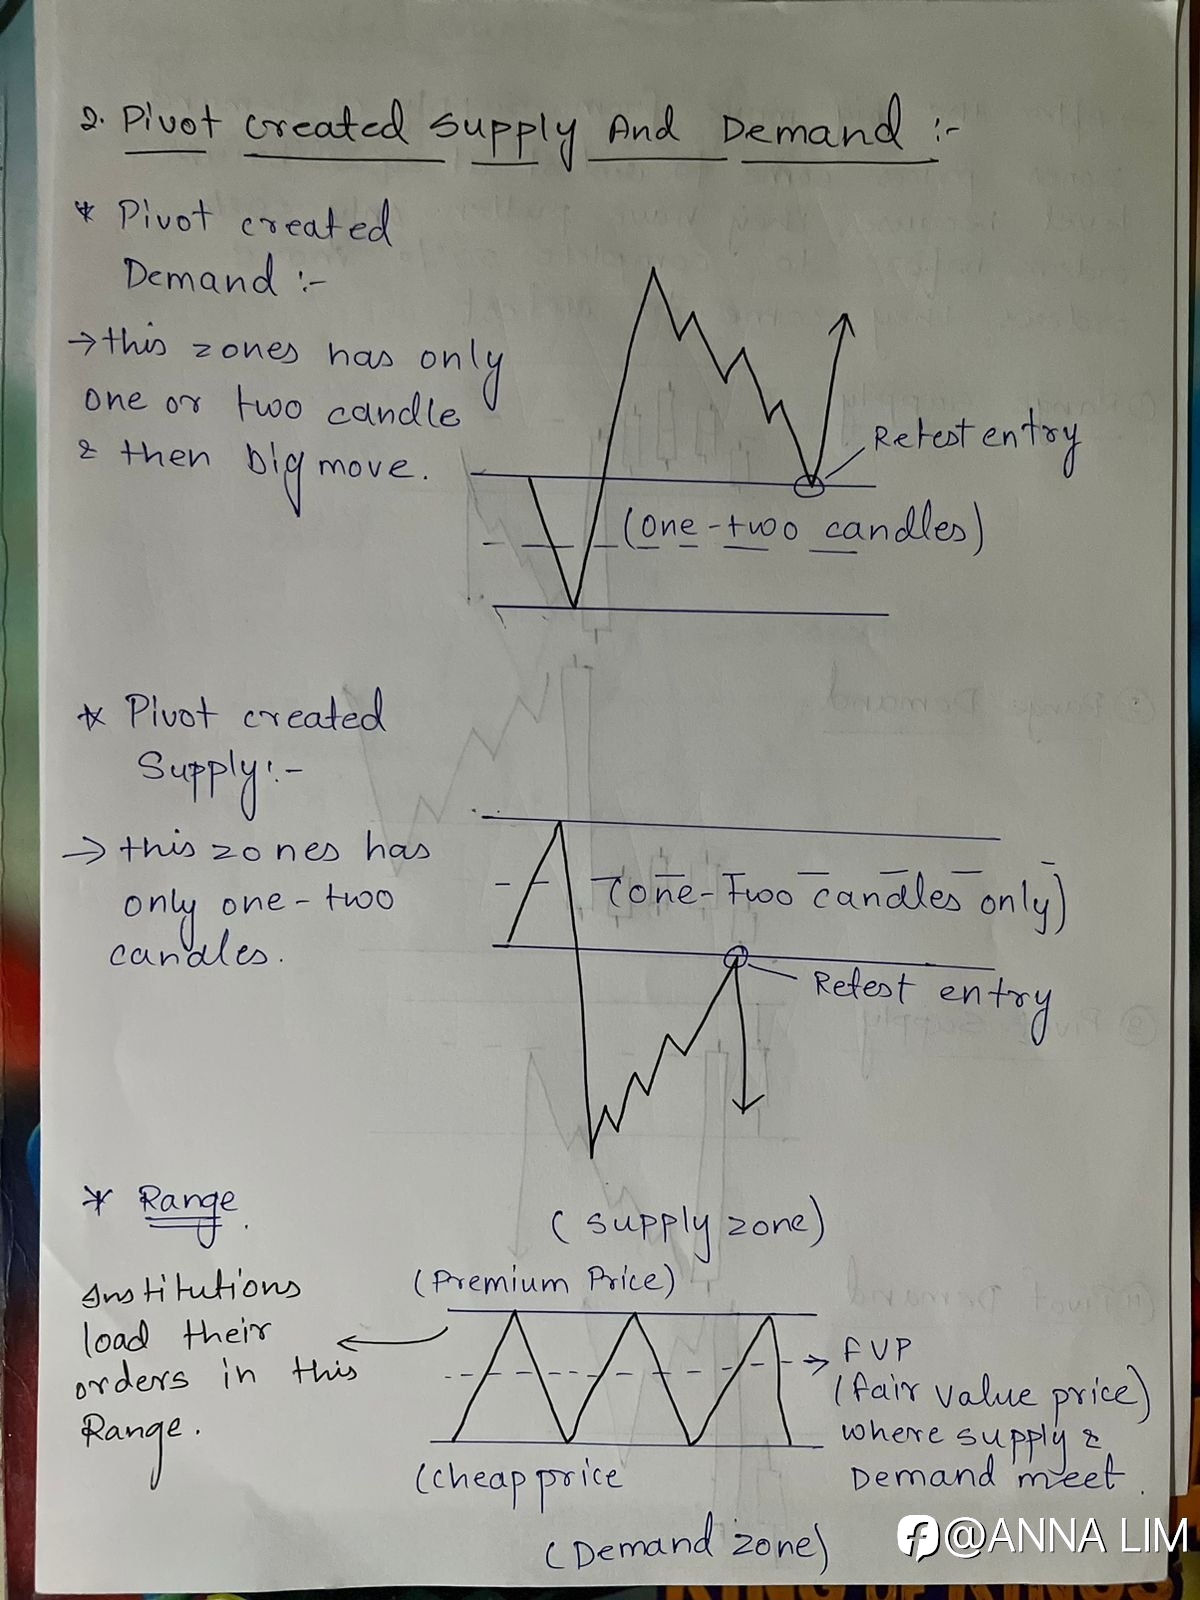 2. Pivot created supply And Demand :-
* Pivot created
Demand :-
→ this zones has only
one or two candle
& then big move.
Retest entry
(one-two candles)
* Pivot created
Supply:-
→ this zones has
only one-two
candles.
(one-Two candles only)
Retest entry
* Range.
Institutions
load their
orders in this
Range.
(supply zone)
(Premium Price)
FVP
(fair value price)
where supply &
Demand meet.
(cheap price
(Demand zone)
@ANNA LIM
KING OF KINGS